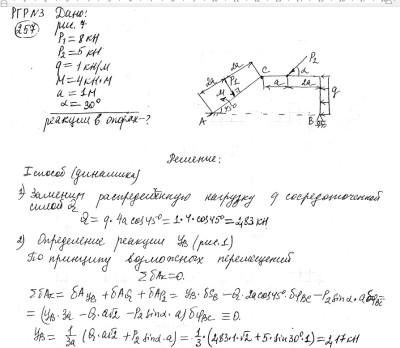 РГР№3 Дано:
257 рис. 7
P₁ = 8 кН
P₂ = 5 кН
q = 1 кН/м
M = 4 кН·м
a = 1 м
α = 30°
реакции в опорах - ?
2a P₁ 2a C P₂ α
M a 2a q
A 45° B
Решение:
I способ (динамика)
1) Заменим распределённую нагрузку q сосредоточенной
силой Q
Q = q·4a cos45° = 1·4·cos45° = 2,83 кН
2) Определение реакции Y_B (рис. 1)
По принципу возможных перемещений
ΣδA_k = 0.
ΣδA_k = δA_{Y_B} + δA_Q + δA_{P_2} = Y_B·δS_B - Q·2a cos45°·δφ_{BC} - P₂ sinα·a δφ_{BC} =
= (Y_B·3a - Q·a√2 - P₂ sinα·a) δφ_{BC} = 0.
Y_B = 1/3a (Q·a√2 + P₂ sinα·a) = 1/3·(2,83·1·√2 + 5·sin30°·1) = 2,17 кН